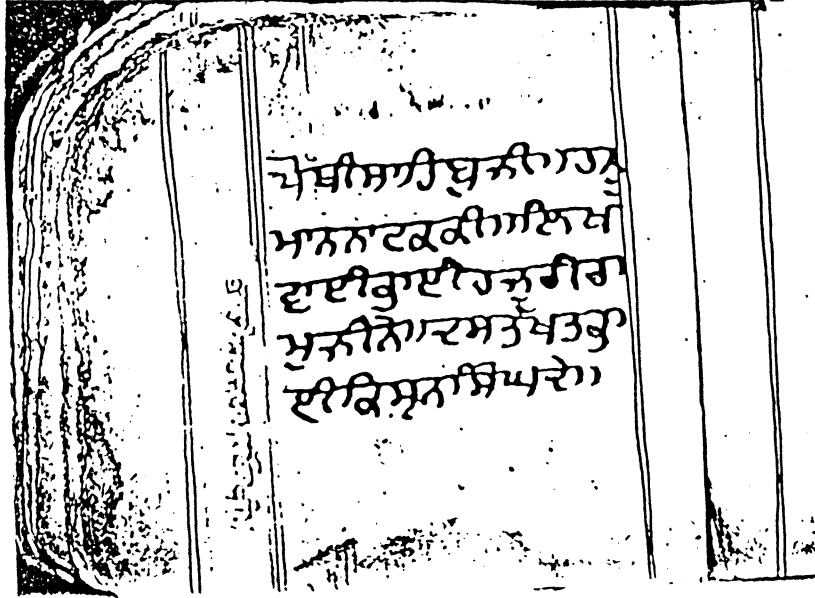 ਪੋਥੀ ਸਾਹਿਬੁ ਜੀ॥ ਹਨੂ
ਮਾਨ ਨਾਟਕ ਕੀ॥ ਲਿਖ
ਵਾਈ ਭਾਈ ਹਜੂਰੀ ਰਾ
ਮੁ ਜੀ ਨੇ॥ ਦਸਤਖਤ ਭਾ
ਈ ਕਿਸ੍ਰਨ ਸਿੰਘ ਦੇ॥